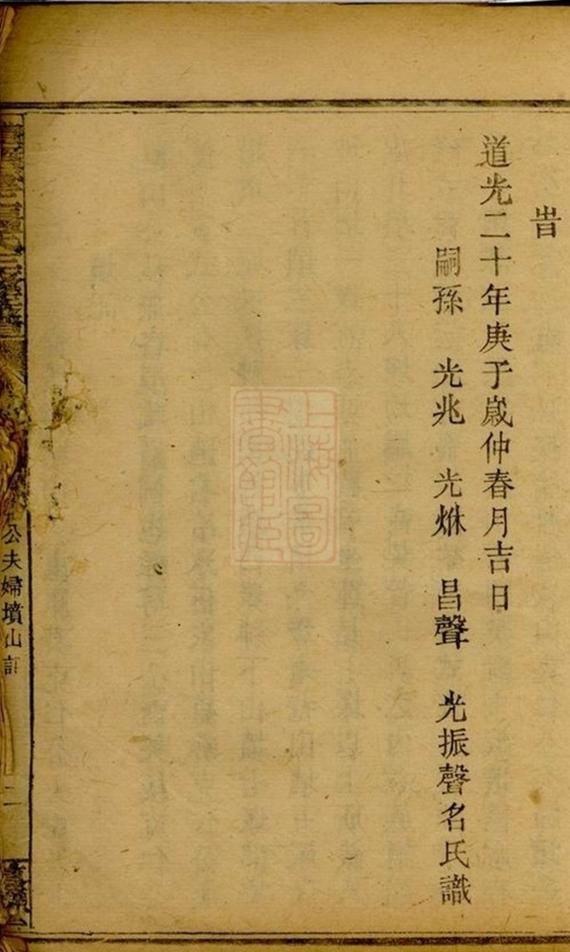 旹
道光二十年庚子嵗仲春月吉日
嗣孫 光兆 光烌 昌聲 光振聲名氏識
公夫婦墳山記
二
上海圖
書館藏